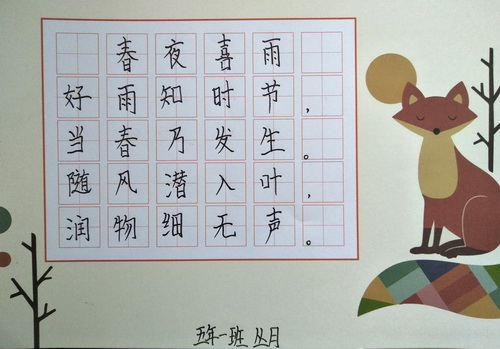 春夜喜雨
好雨知时节，
当春乃发生。
随风潜入叶，
润物细无声。
五年一班 丛月